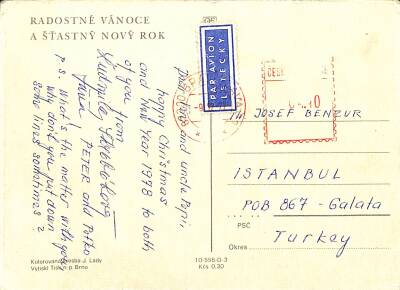 RADOSTNÉ VÁNOCE
A ŠŤASTNÝ NOVÝ ROK
and uncle Pipii,
happy Christmas
and New Year 1978 to both
of you from
Ludmila
PETER and
P.S. What's the matter with you,
why don't you put down
some lines sometimes?
Kolorovaná kresba J. Lady
Vytiskl Tisk, p. Brno
10-558-0-3
Kčs 0,30
PAR AVION
LETECKY
JOSEF BENZUR
ISTANBUL
POB 867 - Galata
PSČ
Turkey
Okres